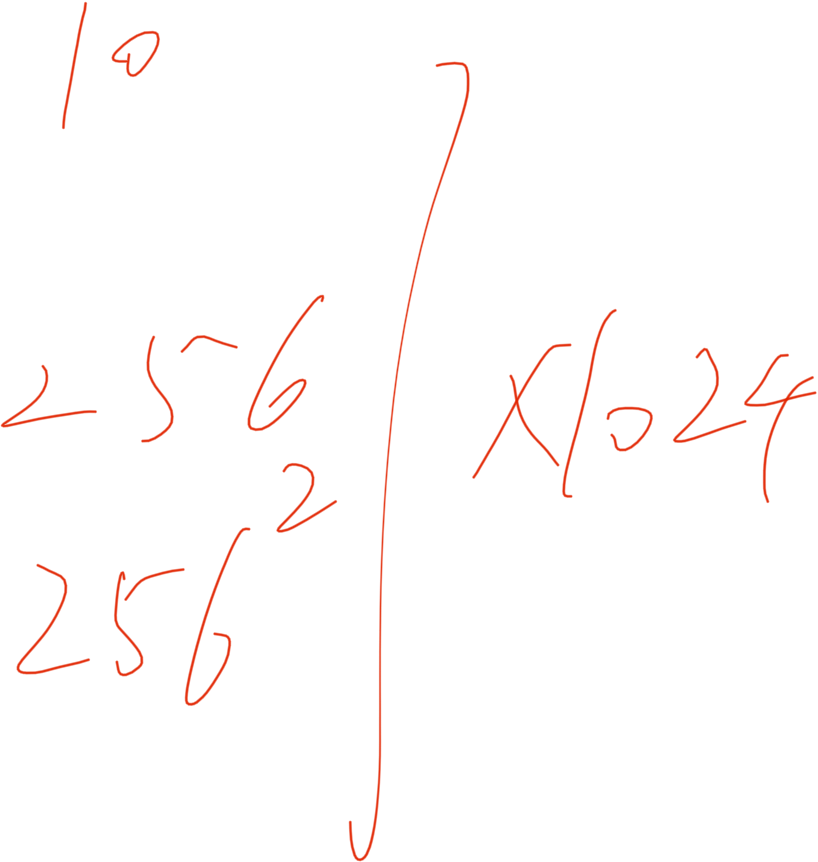 10
256
256²
×1024